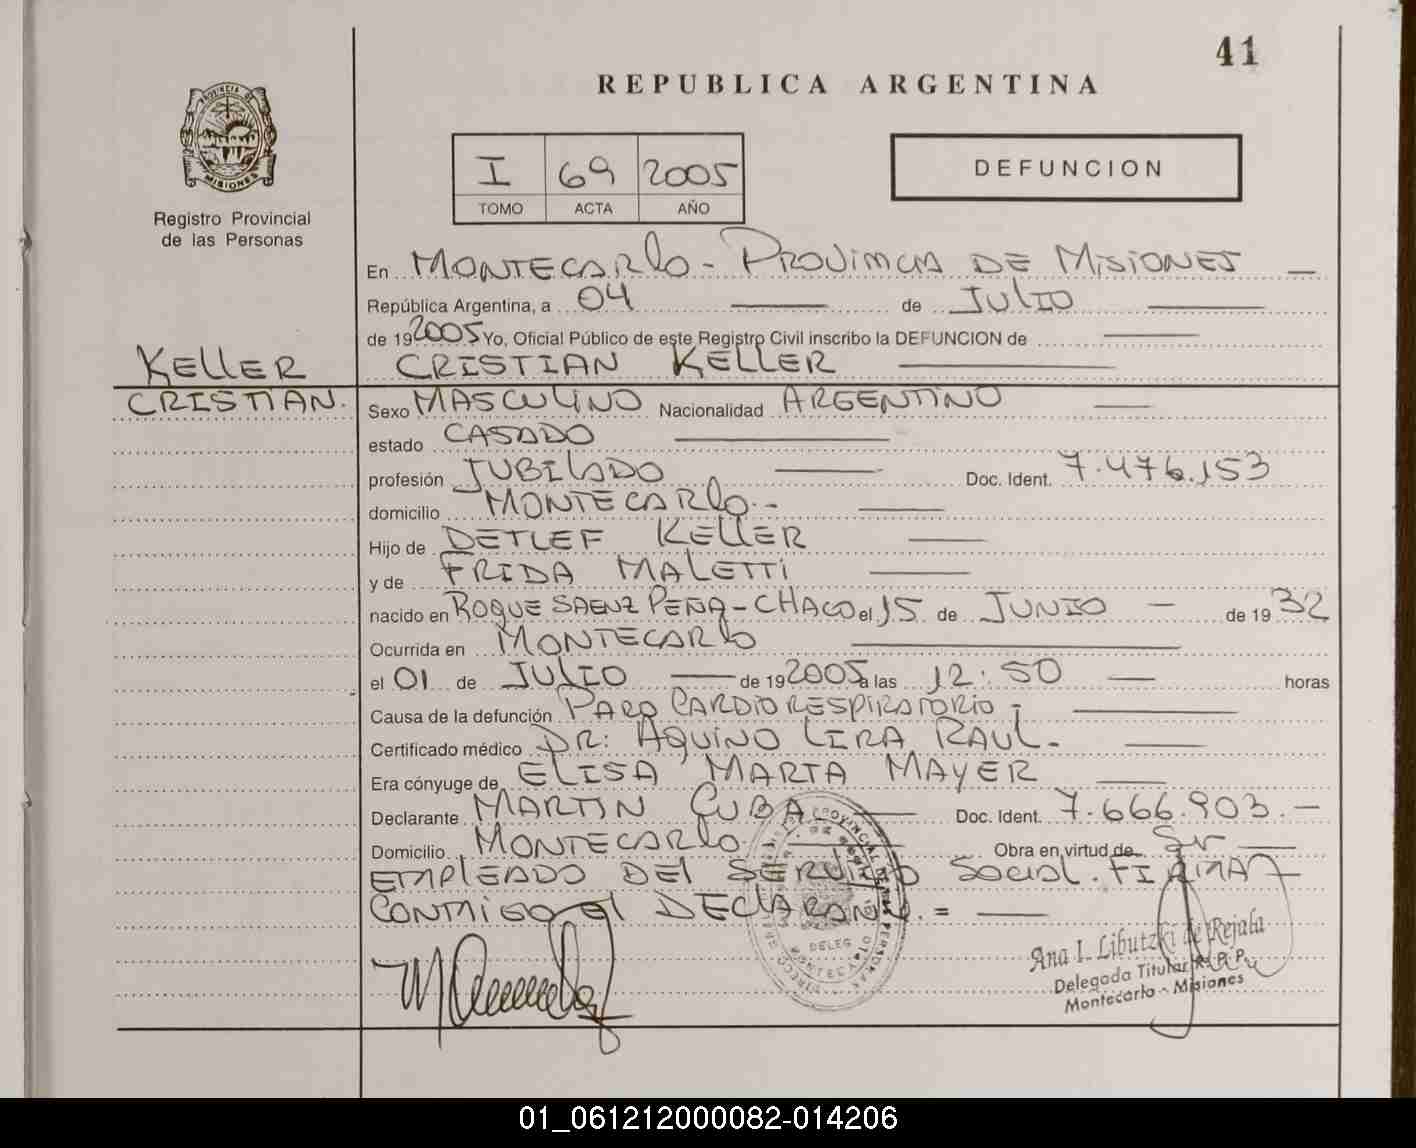 41
REPUBLICA ARGENTINA
PROVINCIA DE
MISIONES
Registro Provincial
de las Personas
I 69 2005
TOMO ACTA AÑO
DEFUNCION
En MONTECARLO - PROVINCIA DE MISIONES —
República Argentina, a 04 — de JULIO —
de 192005 Yo, Oficial Público de este Registro Civil inscribo la DEFUNCION de —
KELLER CRISTIAN KELLER —
CRISTIAN. Sexo MASCULINO Nacionalidad ARGENTINO —
estado CASADO —
profesión JUBILADO — Doc. Ident. 7.476.153
domicilio MONTECARLO.- —
Hijo de DETLEF KELLER —
y de FRIDA MALETTI —
nacido en ROQUE SAENZ PEÑA - CHACO el 15 de JUNIO — de 1932
Ocurrida en MONTECARLO —
el 01 de JULIO — de 192005 a las 12:50 — horas
Causa de la defunción PARO CARDIO RESPIRATORIO - —
Certificado médico DR: AQUINO LIRA RAUL. —
Era cónyuge de ELISA MARTA MAYER —
Declarante MARTIN CUBA — Doc. Ident. 7.666.903.—
Domicilio MONTECARLO — Obra en virtud de Ser —
EMPLEADO DEL SERVICIO SOCIAL. FIRMA
CONMIGO El DECLARANTE. = —
DELEG
MONTECARLO
Ana I. Libutzki de Rejala
Delegada Titular R. P. P.
Montecarlo - Misiones
01_061212000082-014206